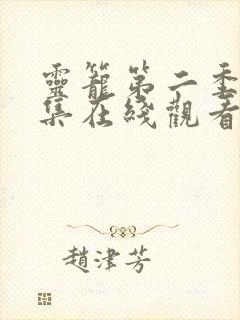 靈籠第二季
集在綫觀看
趙津芳